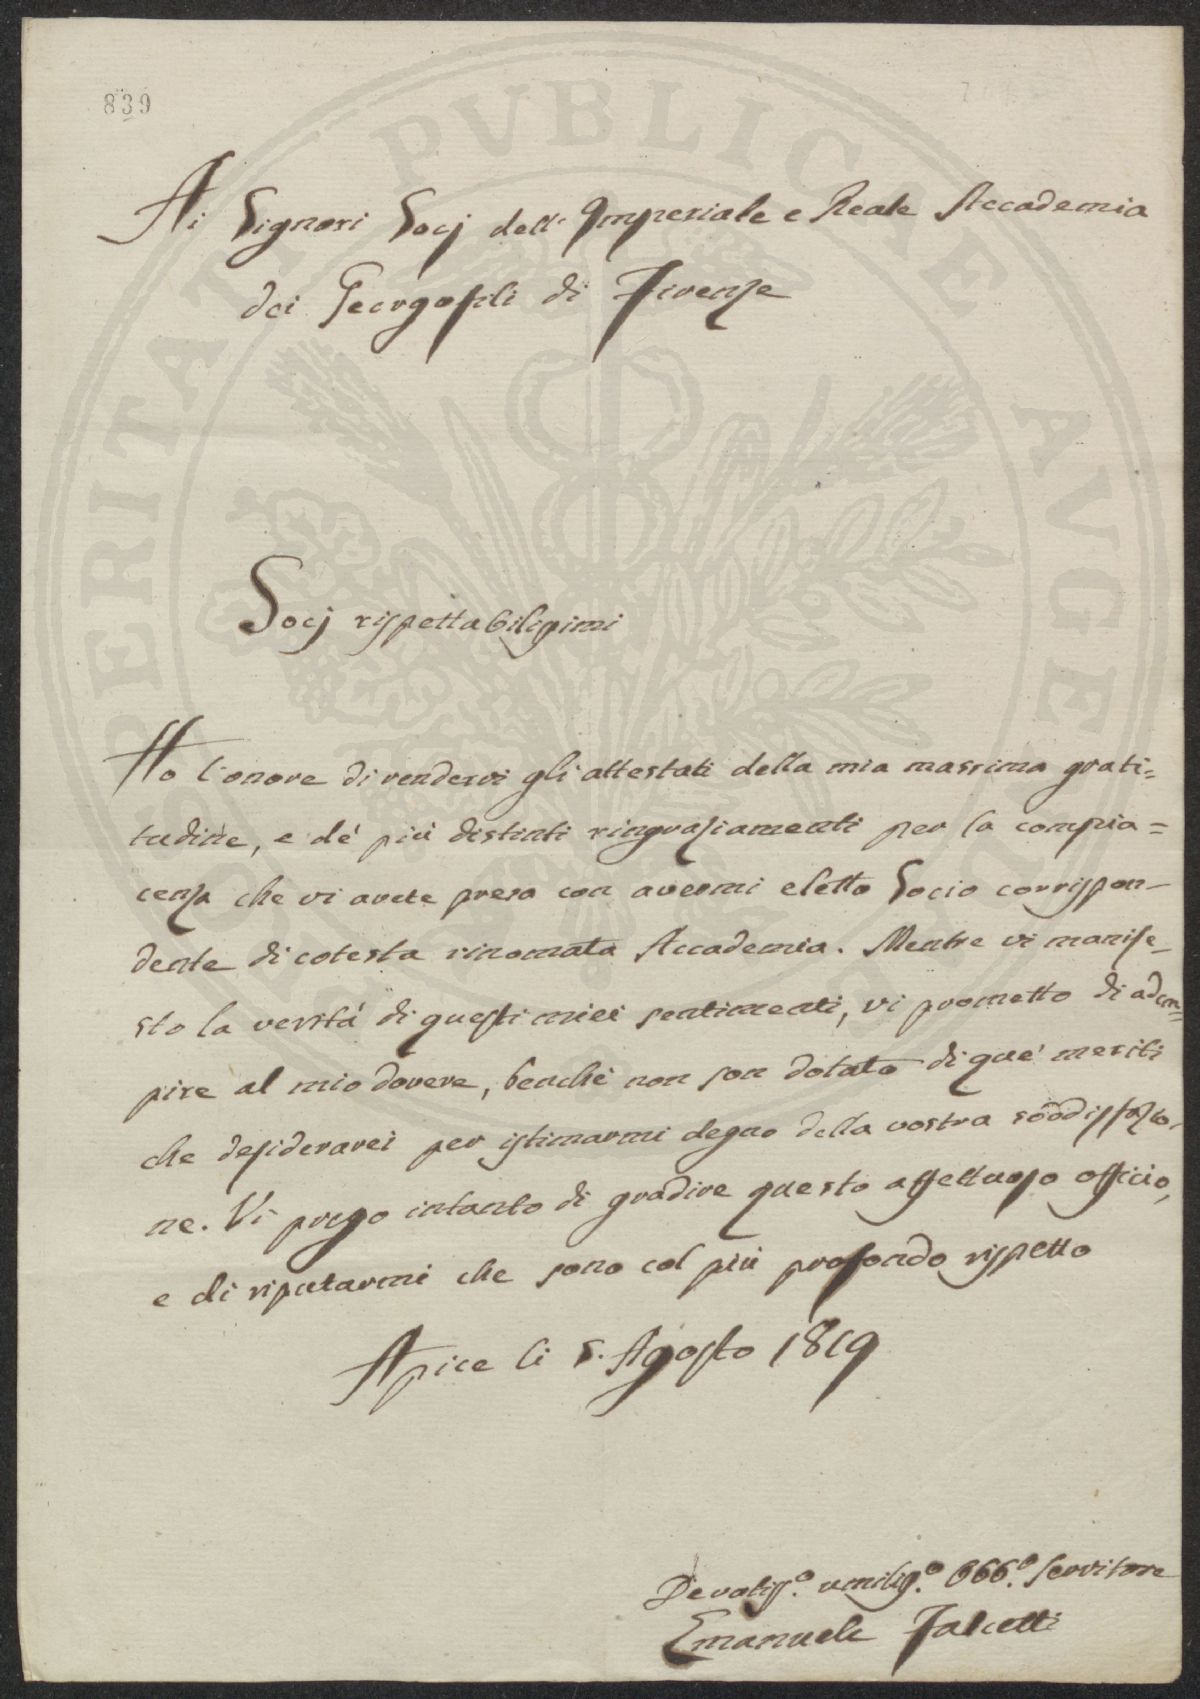 839
Ai Signori Socj dell' Imperiale e Reale Accademia
dei Georgofili di Firenze
Socj rispettabilissimi
Ho l'onore di rendervi gli attestati della mia massima grati=
tudine, e de' più distinti ringraziamenti per la compia=
cenza che vi avete presa con avermi eletto Socio corrispon-
dente di cotesta rinomata Accademia. Mentre vi manife-
sto la verità di questi miei sentimenti, vi prometto di adem=
pire al mio dovere, benché non son dotato di que' meriti
che desiderarei per istimarmi degno della vostra soddisfazio,
ne. Vi prego intanto di gradire questo affettuoso officio,
e di riputarmi che sono col più profondo rispetto
Apice li 5. Agosto 1819
Devotiss.º umiliss.º obb.º Servitore
Emanuele Falcetti
PROSPERITATI PVBLICAE AVGENDAE